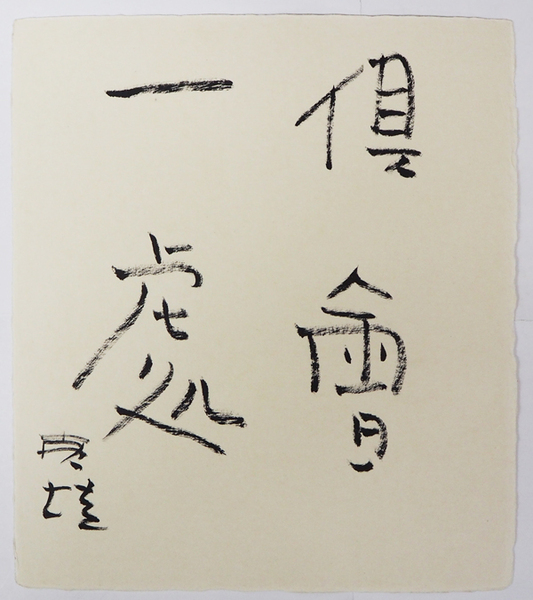 俱會
一處